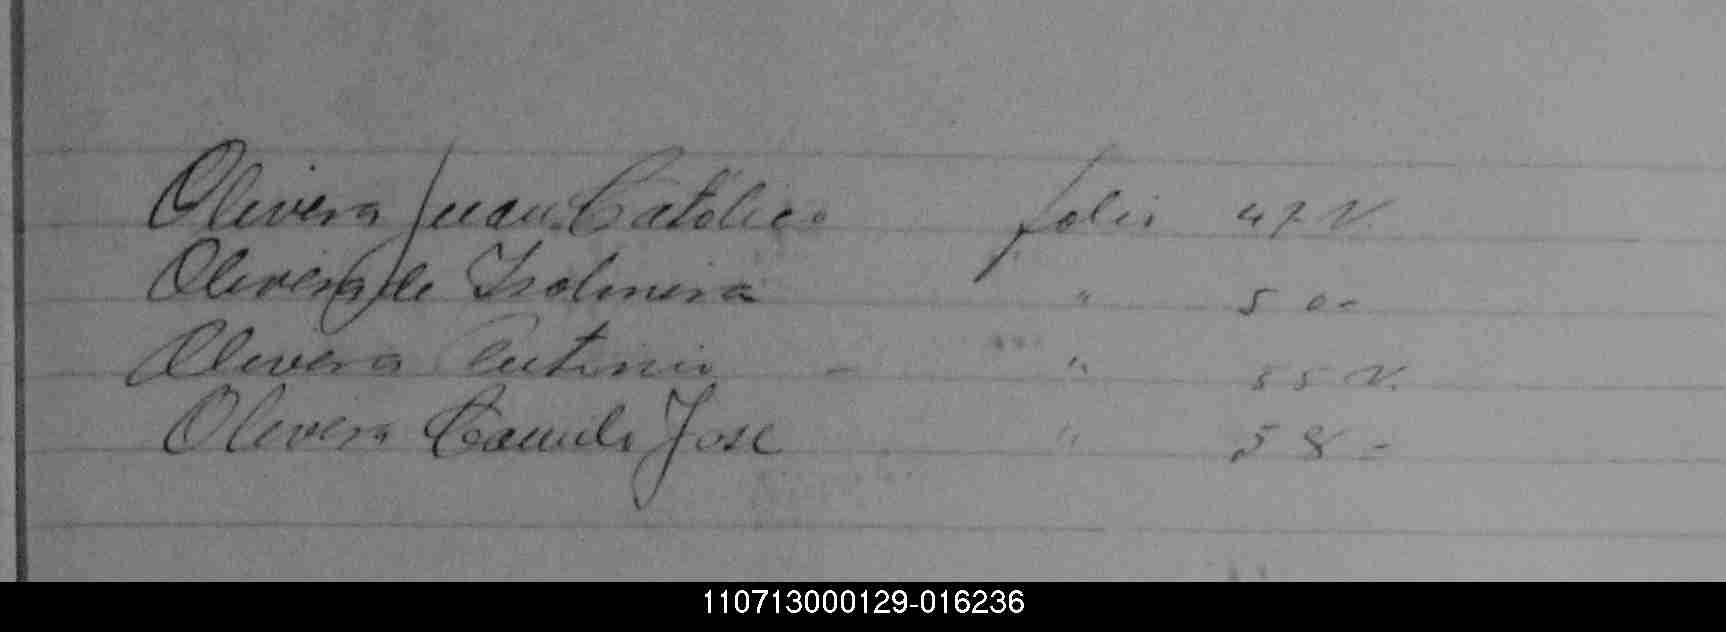 Olivera Juan Católico folio 47 V.
Olivera de Isolmira " 50 -
Olivera Antonio - " 55 V.
Olivera Camilo Jose " 58 -
110713000129-016236